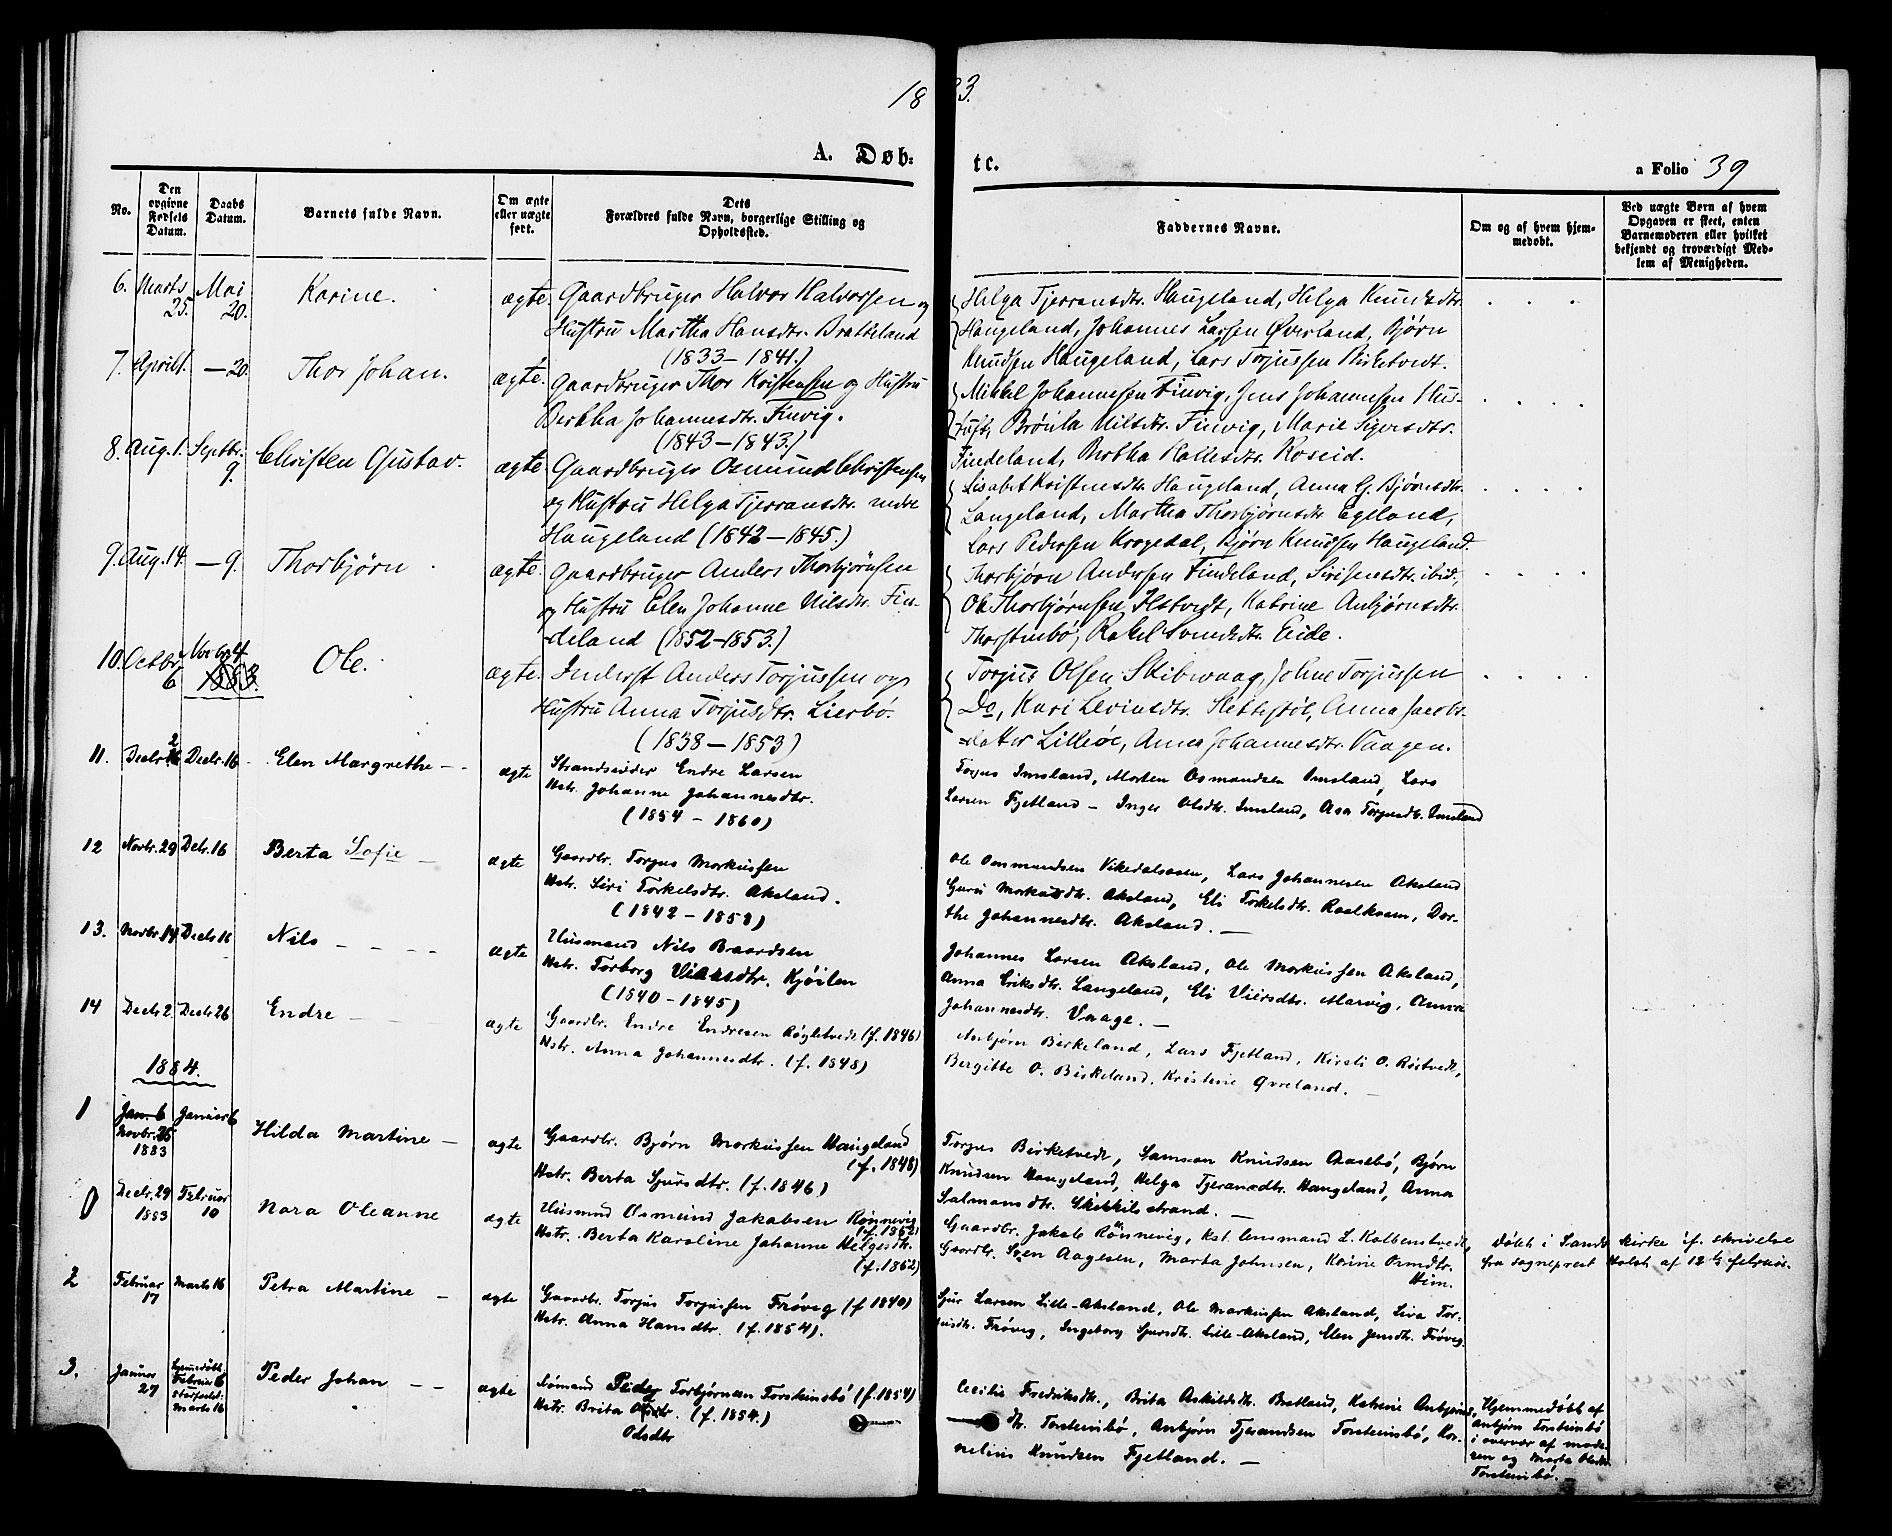 1883.
A. Døb: tc.
a Folio 39
No.
Den opgivne Fødsels Datum.
Daabs Datum.
Barnets fulde Navn.
Om ægte eller uægte født.
Dets Forældres fulde Navn, borgerlige Stilling og Opholdssted.
Faddernes Navne.
Om og af hvem hjemmedøbt.
Ved uægte Børn af hvem Opgaven er skeet, enten Barnemoderen eller hvilket bekjendt og troværdigt Medlem af Menigheden.
6. Marts 25. Mai 20. Karine. ægte. Gaardbruger Halvor Halvorsen og
Hustru Martha Hansdtr. Bratteland
(1833–1841.)
Helga Tjerransdtr. Haugeland, Helga Knudsdtr.
Haugeland, Johannes Larsen Øverland, Bjørn
Knudsen Haugeland, Lars Torjussen Birketvedt.
7. April 1. — 20. Thor Johan. ægte. Gaardbruger Thor Kristensen og Hustru
Bertha Johannesdtr. Finvig.
(1843–1843.)
Mikkel Johannessen Finvig, Jens Johannessen
Nilsdtr. Finvig, Marie Sigersdtr.
Findeland, Bertha Kallesdtr. Roseid.
8. Aug. 1. Septbr. 9. Christen Gustav. ægte. Gaardbruger Osmund Christensen
og Hustru Helga Tjerransdtr. nedre
Haugeland (1842–1845.)
Lisabet Kristensdtr. Haugeland, Anna G. Bjørnsdtr.
Langeland, Martha Thorbjørnsdtr. Egeland,
Lars Pedersen Krogedal, Bjørn Knudsen Haugeland.
9. Aug. 14. — 9. Thorbjørn ægte. Gaardbruger Anders Thorbjørnsen
og Hustru Elen Johanne Nilsdtr. Fin-
deland (1852–1853.)
Thorbjørn Andersen Findeland, ibid,
Ole Thorbjørnsen Ilstvedt, Katrine Anbjørnsdtr.
Thorsteinbø, Rakel Svendsdtr. Eide.
10. Octbr. 6 Novbr. 4 1883. Ole. ægte. Inderst Anders Torjussen og
Hustru Anna Torjusdtr. Lierbø.
(1838–1853)
Torjus Olsen Skibevaag, Johne Torjussen
Do, Kari Levinsdtr. Slettestøl, Anna Jacobs-
datter Lilleøe, Anna Johannesdtr. Vaagen.
11. Decbr. 2 Decbr. 16 Elen Margrethe – – ægte Strandsidder Endre Larsen
Hstr. Johanne Johannesdtr.
(1854 – 1860)
Torjus Imsland, Morten Osmundsen Imsland, Lars
Larsen Fjetland – Inger Olsdtr. Imsland, Asa Torjusdtr. Imsland
12 Novbr. 29 Decbr. 16 Berta Sofie – ægte Gaardbr. Torjus Morkussen
Hstr. Siri Torkelsdtr. Aksland.
(1842 – 1852)
Ole Osmundsen Vikedalsosen, Lars Johannesen Aksland
Guri Morkusdtr. Aksland, Eli Torkelsdtr. Raalkvam, Dor-
the Johannesdtr. Aksland. –
13. Novbr. 14 Decbr. 16 Nils – – – – ægte Husmand Nils Baardsen
Hstr. Torborg Viersdtr. Kjøilen
(1840 – 1845)
Johannes Larsen Aksland, Ole Morkussen Aksland,
Anna Eriksdtr. Langeland, Eli Viersdtr. Marvig, Anna
Johannesdtr. Vaage. –
14 Decbr. 2. Decbr. 26 Endre – – ægte Gaardbr. Endre Endresen Røgletvedt (f. 1846)
Hstr. Anna Johannesdtr. (f. 1848)
Anbjørn Birkeland, Lars Fjetland, Kirsti O. Røitvedt,
Bergitte O. Birkeland, Kristine Øvreland. –
1884.
1 Jan. 6 Novbr. 25 1883 Januar 6 Hilda Martine – ægte Gaardbr. Bjørn Morkussen Haugeland (f. 1848)
Hstr. Berta Sjursdtr. (f. 1846)
Torjus Birketvedt, Samson Knudsen Aasebø, Bjørn
Knudsen Haugeland, Helga Tjeransdtr. Haugeland, Anna
Salmansdtr. Skikkilstrand. –
0 Decbr. 29 1883 Februar 10 Nora Oleanne ægte Husmnd Osmund Jakobsen Rønnevig (f. 1862)
Hstr. Berta Karoline Johanne Helgesdtr. (f. 1862)
Gaardbr. Jakob Rønnevig, kst. lensmand L. Kolbenstvedt,
Gaardbr. Sven Aagesen, Marta Johnsen, Karine Ormdtr.
Heim.
Døbt i Sands kirke if. skrivelse
fra sogneprest Holst af 12/2 februar.
2 Februar 17 Marts 16 Petra Martine – ægte Gaardbr. Torjus Torjussen Frøvig (f 1840)
Hstr. Anna Hansdtr. (f. 1854).
Sjur Larsen Lille-Aksland, Ole Markussen Aksland, Liva Tor-
jusdtr. Frøvig, Ingeborg Sjursdtr. Lille-Aksland, Elen Jensdtr. Frøvig.
3. Januar 27 hjemmedøbt Februar 6 stadfæstet: Marts 16 Peder Johan – – ægte Sømand Peder Torbjørnsen Torsteinsbø (f. 1854)
Hstr. Brita (f. 1854.)
Odsdtr
Cecilie Fredriksdtr., Brita Askildsdtr. Bratland, Katrine Anbjørns-
dtr. Torsteinsbø, Anbjørn Tjerandsen Torsteinsbø, Kor-
nelius Knudsen Fjetland. –
Hjemmedøbt af
Anbjørn Torsteinsbø
i overvær af mode-
ren og Marta Olsdtr.
Torsteinsbø.